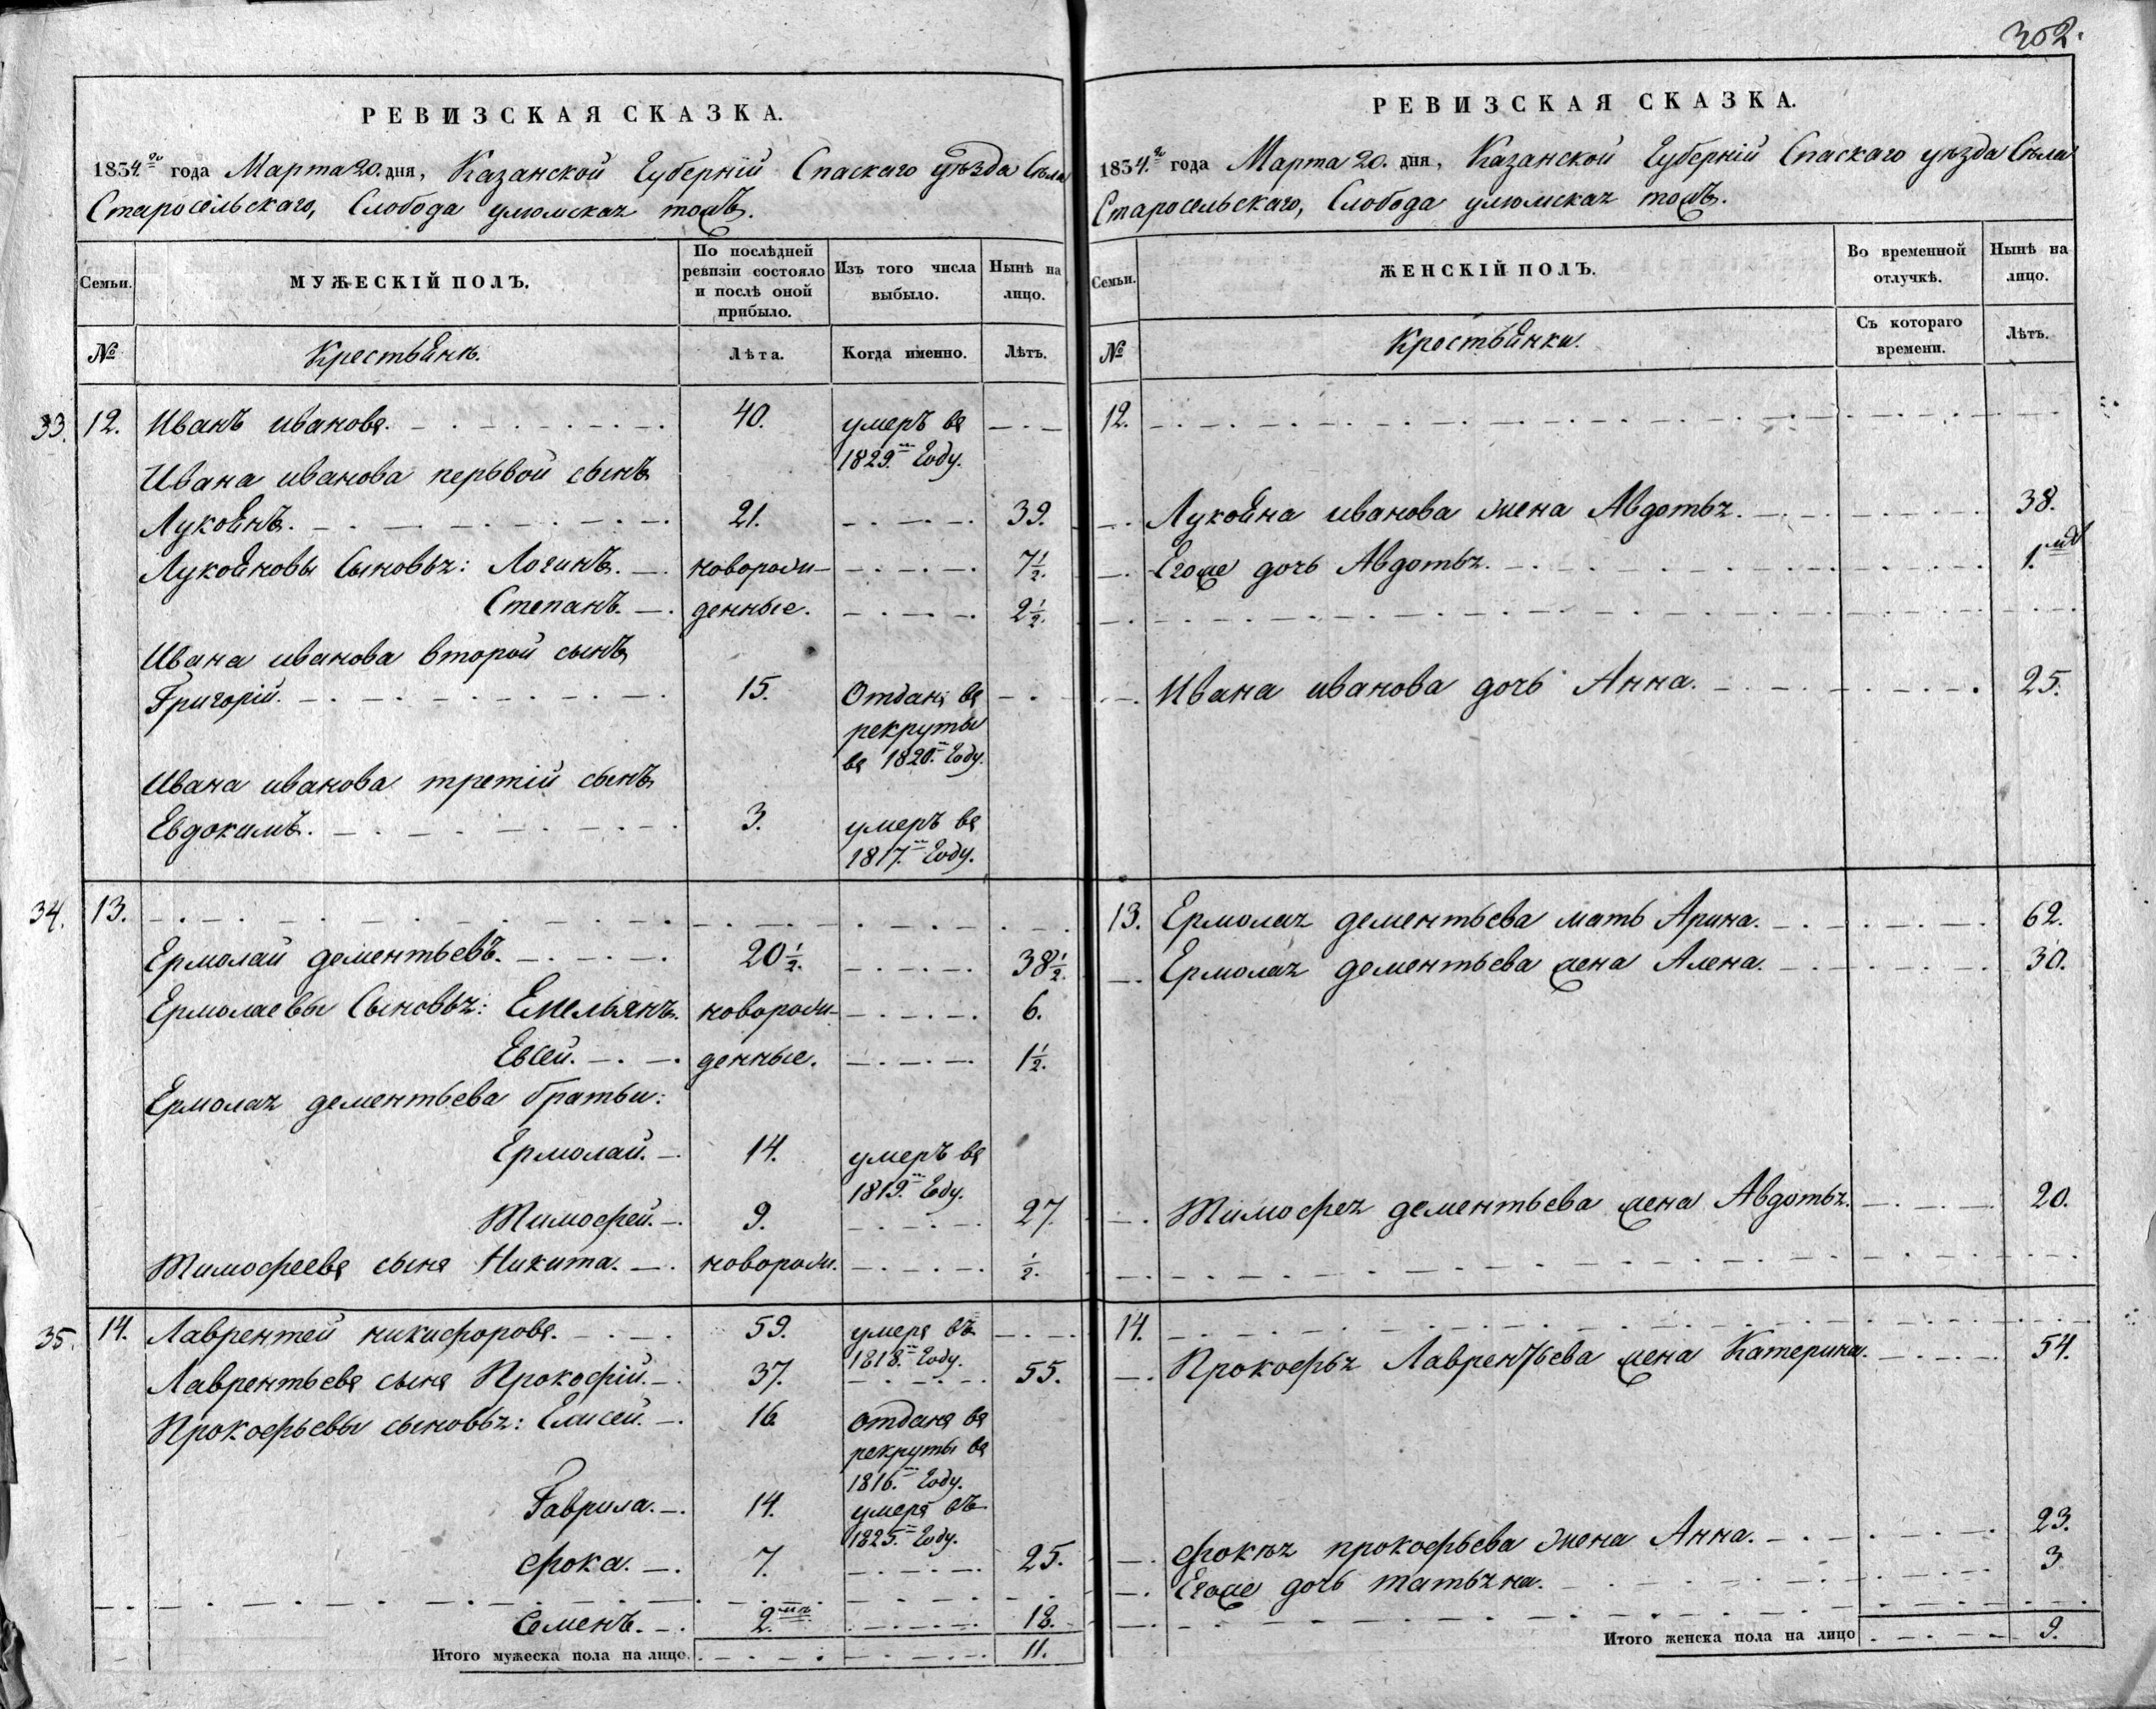 302.
РЕВИЗСКАЯ СКАЗКА.
1834.го года Марта 20. дня, Казанской Губерніи Спаскаго уѣзда Села
Старосельскаго, Слобода тожъ.
Семьи. МУЖЕСКІЙ ПОЛЪ. По послѣдней ревизіи состояло и послѣ оной прибыло. Изъ того числа выбыло. Нынѣ на лицо.
№ Крестьянѣ. Лѣта. Когда именно. Лѣтъ.
33. 12. Иванъ ивановъ. 40. умеръ въ
1829.м Году.
Ивана иванова перввой сынъ
Лукоянъ. 21. 39.
Лукояновы Сыновья: Логинъ. новорож- 7½.
Степанъ. денные. 2½.
Ивана иванова второй сынъ
Григорій. 15. Отданъ въ
рекруты
въ 1820.м Году.
Ивана иванова третій сынъ
Евдокимъ. 3. умеръ въ
1817.м Году.
34. 13.
Ермолай дементьевъ. 20½. 38½.
Ермолаевы Сыновья: Емельянъ. новорож- 6.
Евсей. денные. 1½.
Ермолая дементьева братьи:
Ермолай. 14. умеръ въ
1819.м Году.
Тимофей. 9. 27.
Тимофеевъ сынъ Никита. новорож. ½.
35. 14. Лаврентей никифоровъ. 59. умеръ въ
1818.м Году.
Лаврентьевъ сынъ Прокофій. 37. 55.
Прокофьевы сыновья: Елисей. 16. отданъ въ
рекруты въ
1816.м Году.
Гаврила. 14. умеръ въ
1825.м Году.
Фока. 7. 25.
Семенъ. 2.мѣ. 18.
Итого мужеска пола на лицо. 11.
РЕВИЗСКАЯ СКАЗКА.
1834.го года Марта 20. дня, Казанской Губерніи Спаскаго уѣзда Села
Старосельскаго, Слобода тожъ.
Семьи. ЖЕНСКІЙ ПОЛЪ. Во временной отлучкѣ. Нынѣ на лицо.
№ Крестьянки. Съ котораго времени. Лѣтъ.
12.
Лукояна иванова жена Авдотья. 38.
Егоже дочь Авдотья. 1.мѣ
Ивана иванова дочь Анна. 25.
13. Ермолая дементьева мать Арина. 62.
Ермолая дементьева жена Алена. 30.
Тимофея дементьева жена Авдотья. 20.
14.
Прокофья Лаврентьева жена Катерина. 54.
Фокѣя прокофьева жена Анна. 23.
Егоже дочь татьяна. 3
Итого женска пола на лицо 9.